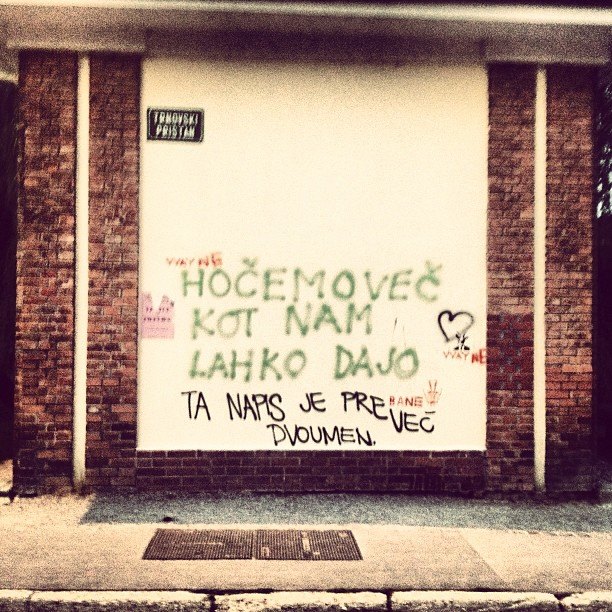 TRNOVSKI
PRISTAN
WAYNE
HOČEMO VEČ
KOT NAM
LAHKO DAJO
WAYNE
BANE
TA NAPIS JE PREVEČ
DVOUMEN.